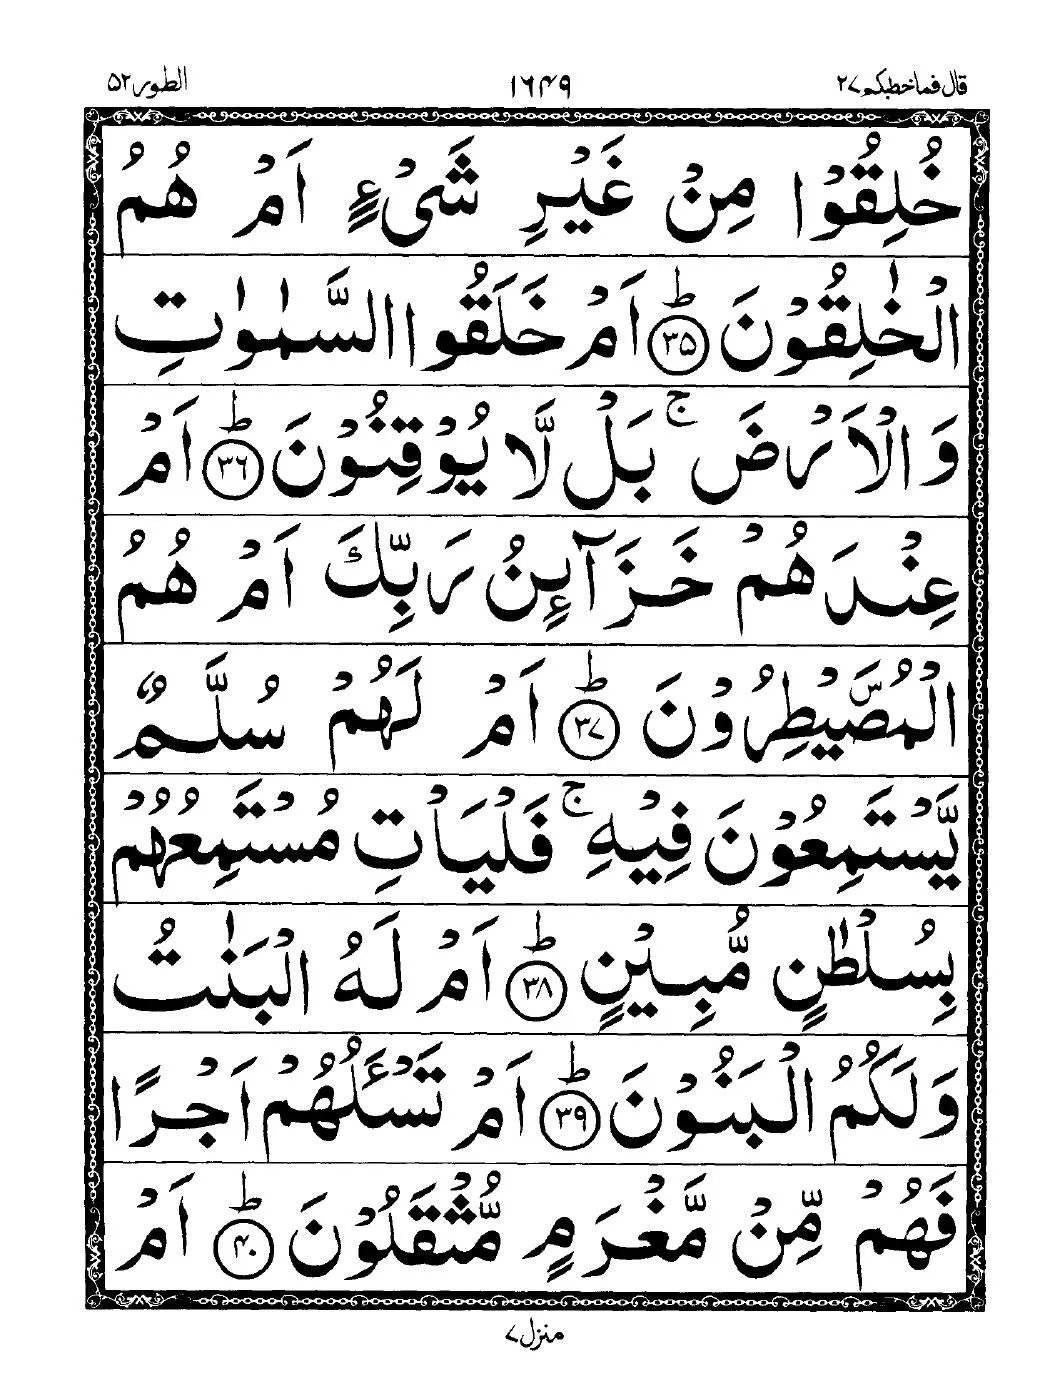 قال فماخطبکم۲۷ ۱۶۴۹ الطور۵۲
خُلِقُوْا مِنْ غَيْرِ شَيْءٍ اَمْ هُمُ
الْخٰلِقُوْنَ ؕ﴿۳۵﴾ اَمْ خَلَقُوا السَّمٰوٰتِ
وَالْاَرْضَ ۚ بَلْ لَّا يُوْقِنُوْنَ ؕ﴿۳۶﴾ اَمْ
عِنْدَهُمْ خَزَآىِٕنُ رَبِّكَ اَمْ هُمُ
الْمُصَۜيْطِرُوْنَ ؕ﴿۳۷﴾ اَمْ لَهُمْ سُلَّمٌ
يَّسْتَمِعُوْنَ فِيْهِ ۚ فَلْيَاْتِ مُسْتَمِعُهُمْ
بِسُلْطٰنٍ مُّبِيْنٍ ؕ﴿۳۸﴾ اَمْ لَهُ الْبَنٰتُ
وَلَكُمُ الْبَنُوْنَ ؕ﴿۳۹﴾ اَمْ تَسْـَٔلُهُمْ اَجْرًا
فَهُمْ مِّنْ مَّغْرَمٍ مُّثْقَلُوْنَ ؕ﴿۴۰﴾ اَمْ
منزل۷